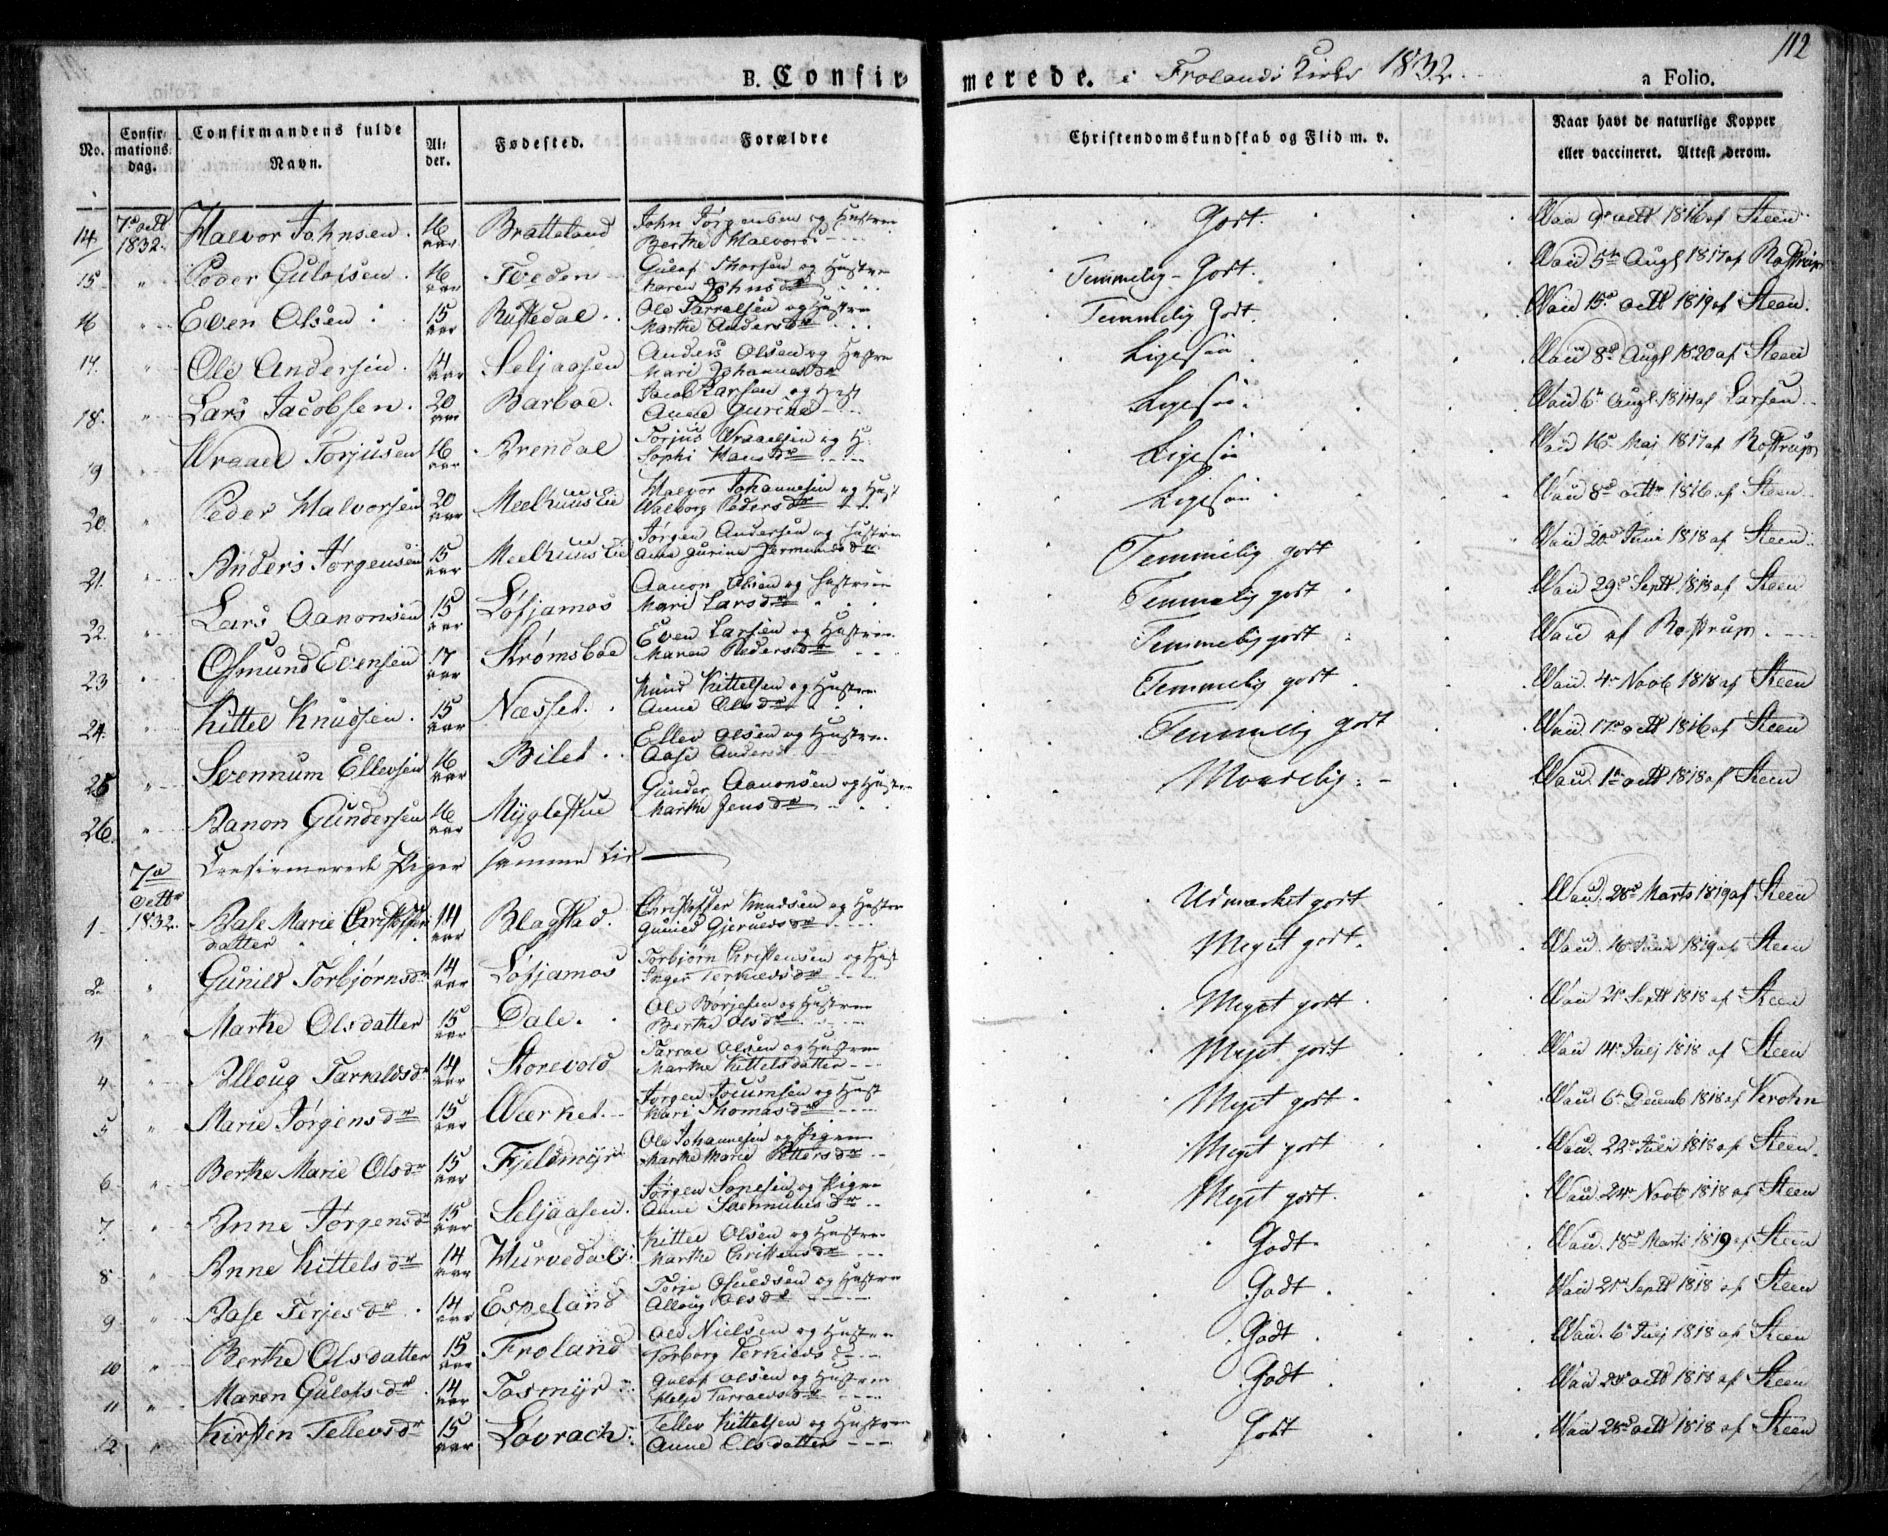 112
B. Confirmerede. i Frolands Kirke 1832
a Folio.
No.
Confirmations-dag.
Confirmandens fulde Navn.
Alder.
Fødested.
Forældre
Christendomskundskab og Flid m. v.
Naar havt de naturlige Kopper eller vaccineret. Attest derom.
14 7de octb 1832. Halvor Johnsen. 16 aar Bratteland John Jørgensen og Hustrue Berthe Halvorsd Godt. Vaii 9de octb 1816 af Steen
15 " Peder Gulofsen. 16 aar Tveden Gulof Thorsen og Hustrue Maren Johnsdr Temmelig Godt. Vaii 5te Augt 1817 af Rostrup
16 " Even Olsen. 15 aar Rustedal Ole Tarralsen og Hustrue Marthe Andersdr Temmelig Godt. Vaii 15de octb 1819 af Steen.
17. " Ole Andersen. 14 aar Seljaasen Anders Olsen og Hustrue Mari Johannesdr Ligesaa Vaii 8de Augt 1820 af Steen
18. " Lars Jacobsen. 20 aar Barboe. Jacob Larsen og Hust Anne Gurine Ligesaa. Vaii 6te Augt 1814 af Larsen
19 " Wraael Torjusen 16 aar Brendal Torjus Wraaelsen og H: Sophi Hansdr Ligesaa Vaii 16de Maj 1817 af Rostrup
20. " Peder Halvorsen 20 aar Meelhuus Eie Halvor Johannesen og Hust Walborg Pedersdr Ligesaa Vaii 8de octbr 1816 af Steen
21. " Anders Jørgensen 15 aar Meelhuus Eie Jørgen Andersen og Hustrue Ane Gurine Jermundsdr Temmelig godt Vaii 20de Juni 1818 af Steen
22. " Lars Aanonsen 15 aar Løfjamos Aanon Olsen og Hustrue Mari Larsdr Temmelig godt Vaii 29de Septb 1818 af Steen
23 " Osmund Evensen 17 aar Strømsboe Even Larsen og Hustrue. Maren Pedersdr Temmelig godt Vaii af Rostrup.
24. " Kittel Knudsen. 15 aar Næsset. Knud Kittelsen og Hustrue Anne Olsdr Temmelig godt Vaii. 4de Novb 1818 af Steen
25 " Svennum Ellevsen 16 aar Bilet. Ellev Olsen og Hustrue. Aase Andersd Temmelig godt Vaii 17de octb 1816 af Steen
26. " Aanon Gundersen 16 aar Myglestue Gunder Aanonsen og Hustrue Marthe Jensdr Maadelig. Vaii. 1te octb 1818 af Steen
Confirmerede Piger samme Tid
1. 7de octbr 1832. Aase Marie Christofersdatter 14 aar Blagstad. Christoffer Knudsen og Hustrue Gunild Gjerulsdr Udmærket godt Vaii. 28de Marts 1819 af Steen
2. " Gunild Torbjørnsdr 14 aar Løfjamos Torbjørn Christensen og Hust Inger Terkildsdr Meget godt. Vaii. 16de Juni 1819 af Steen
3 " Marthe Olsdatter 15 aar Dale. Ole Børjesen og Hustrue Berthe Olsdr Meget godt Vaii 21de Septb 1818 af Steen
4. " Alloug Tarraldsdr 14 aar Storevold Tarral Olsen og Hustrue Marthe Kittelsdatter Meget godt Vaii 14de Julj 1818 af Steen
5 " Marie Jørgensdr 15 aar Værket. Jørgen Jocumsen og Hust Mari Thomasdr Meget godt Vaii 6te Decemb 1818 af Krohn
6. " Berthe Marie Olsdr 15 aar Fjeldmyr Ole Johannesen og Pigen Marthe Marie Pettersdr Meget godt Vaii. 22de Juni 1818 af Steen.
7. " Anne Jørgensdr 15 aar Seljaasen. Jørgen Sonesen og Pigen Anne Svennumsdr Meget godt. Vaii. 24de Novb 1818 af Steen
8. " Anne Kittelsdr 14 aar Hurvedals: Kittel Olsen og Hustrue Marthe Christensdr Godt. Vaii. 18de Marts 1819 af Steen
9. " Aase Terjesdr. 14 aar Espeland Torje Osuldsen og Hustrue Alloug Olsdr Godt Vaii. 21de Septb 1818 af Steen
10 " Berthe Olsdatter 15 aar Froland Ole Nielsen og Hustrue Torborg Terkildsd Godt Vaii. 6te Julj 1818 af Steen
11 " Maren Gulofsdr 14 aar Tosmyr Gulof Olsen og Hustrue Helje Tarraldsdr Godt Vaii. 28de octb 1818 af Steen
12. " Kirsten Tellevsdr 15 aar Lovrach: Tellev Kittelsen og Hustrue Anne Olsdatter Godt Vaii 28de octb 1818 af Steen